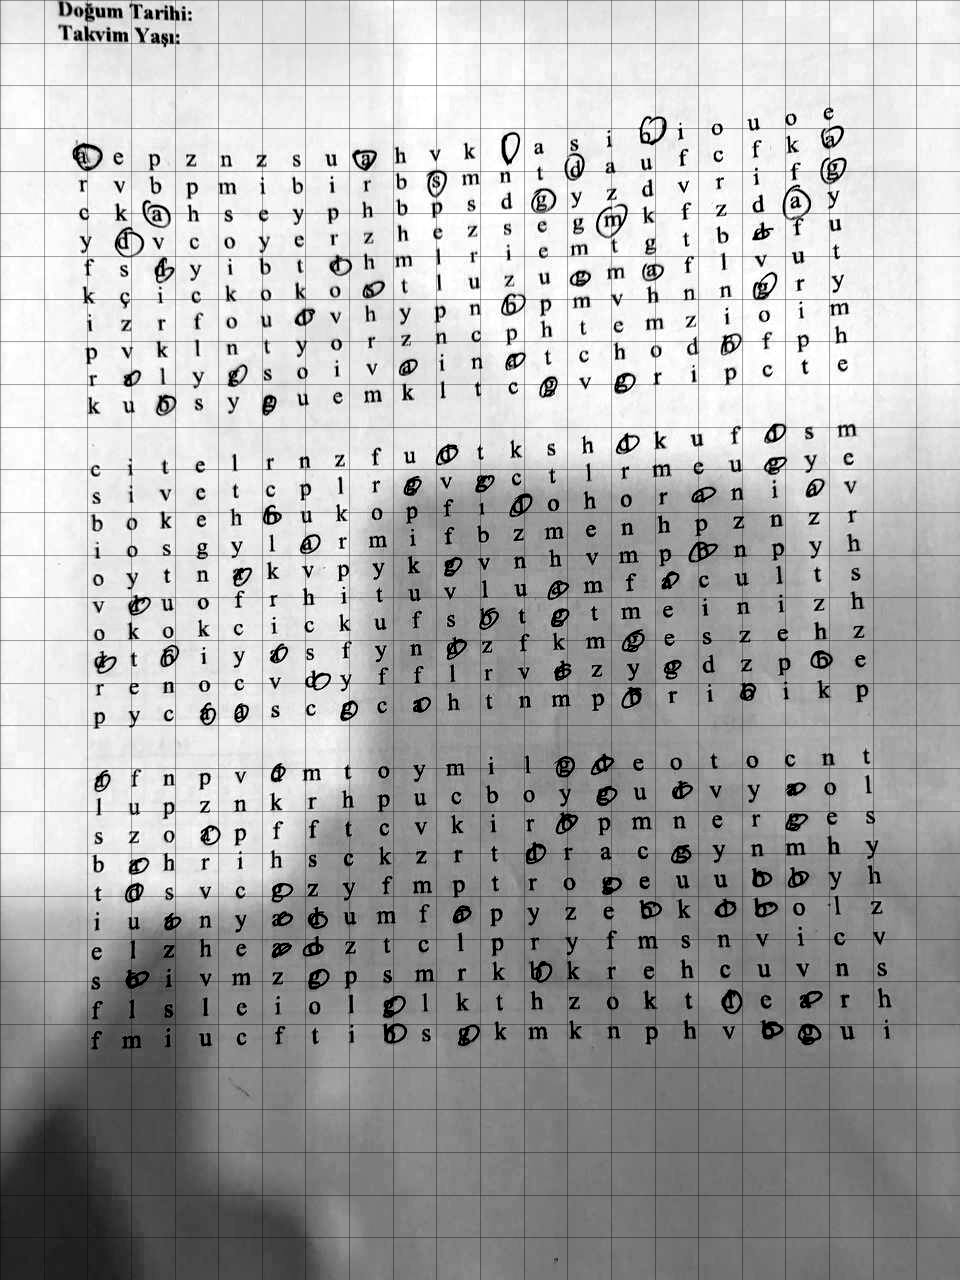 Doğum Tarihi:
Takvim Yaşı:
a e p z n z s u a h v k a s i b i o u o e
r v b p m i b i r b s m n t d a u f c f k a
c k a h s e y p h b p s d g y z d v r i f g
y d v c o y e r z h e z s e g m k f z d a y
f s b y i b t d h m l r i e m t g t b d f u
k ç i c k o k o s t l u z u g m a f l v u t
i z r f o u d v h y p n b p m v h n n g r y
p v k l n t y o r z n c p h t e m z i o i m
r a l y g s o i v a i n a t c h o d b f p h
k u b s y g u e m k l t c g v g r i p c t e
c i t e l r n z f u d t k s h d k u f d s m
s i v e t c p l r g v g c t l r m e u g y e
b o k e h b u k o p f i d o h o r a n i a v
i o s g y l a r m i f b z m e n h p z n z r
o y t n a k v p y k g v n h v m p b n p y h
v d u o f r h i t u v l u a m f a c u l t s
o k o k c i c k u f s b t g t m e i n i z h
d t b i y a s f y n d z f k m g e s z e h z
r e n o c v d y f f l r v d z y g d z p b e
p y c a a s c g c a h t n m p b r i b i k p
a f n p v d m t o y m i l g d e o t o c n t
l u p z n k r h p u c b o y g u d v y a o l
s z o a p f f t c v k i r b p m n e r g e s
b a h r i h s c k z r t d r a c g y n m h y
t d s v c g z y f m p t r o g e u u b b y h
i u a n y a d u m f a p y z e b k d b o l z
e l z h e a d z t c l p r y f m s n v i c v
s b i v m z g p s m r k b k r e h c u v n s
f l s l e i o l g l k t h z o k t d e a r h
f m i u c f t i b s g k m k n p h v b g u i